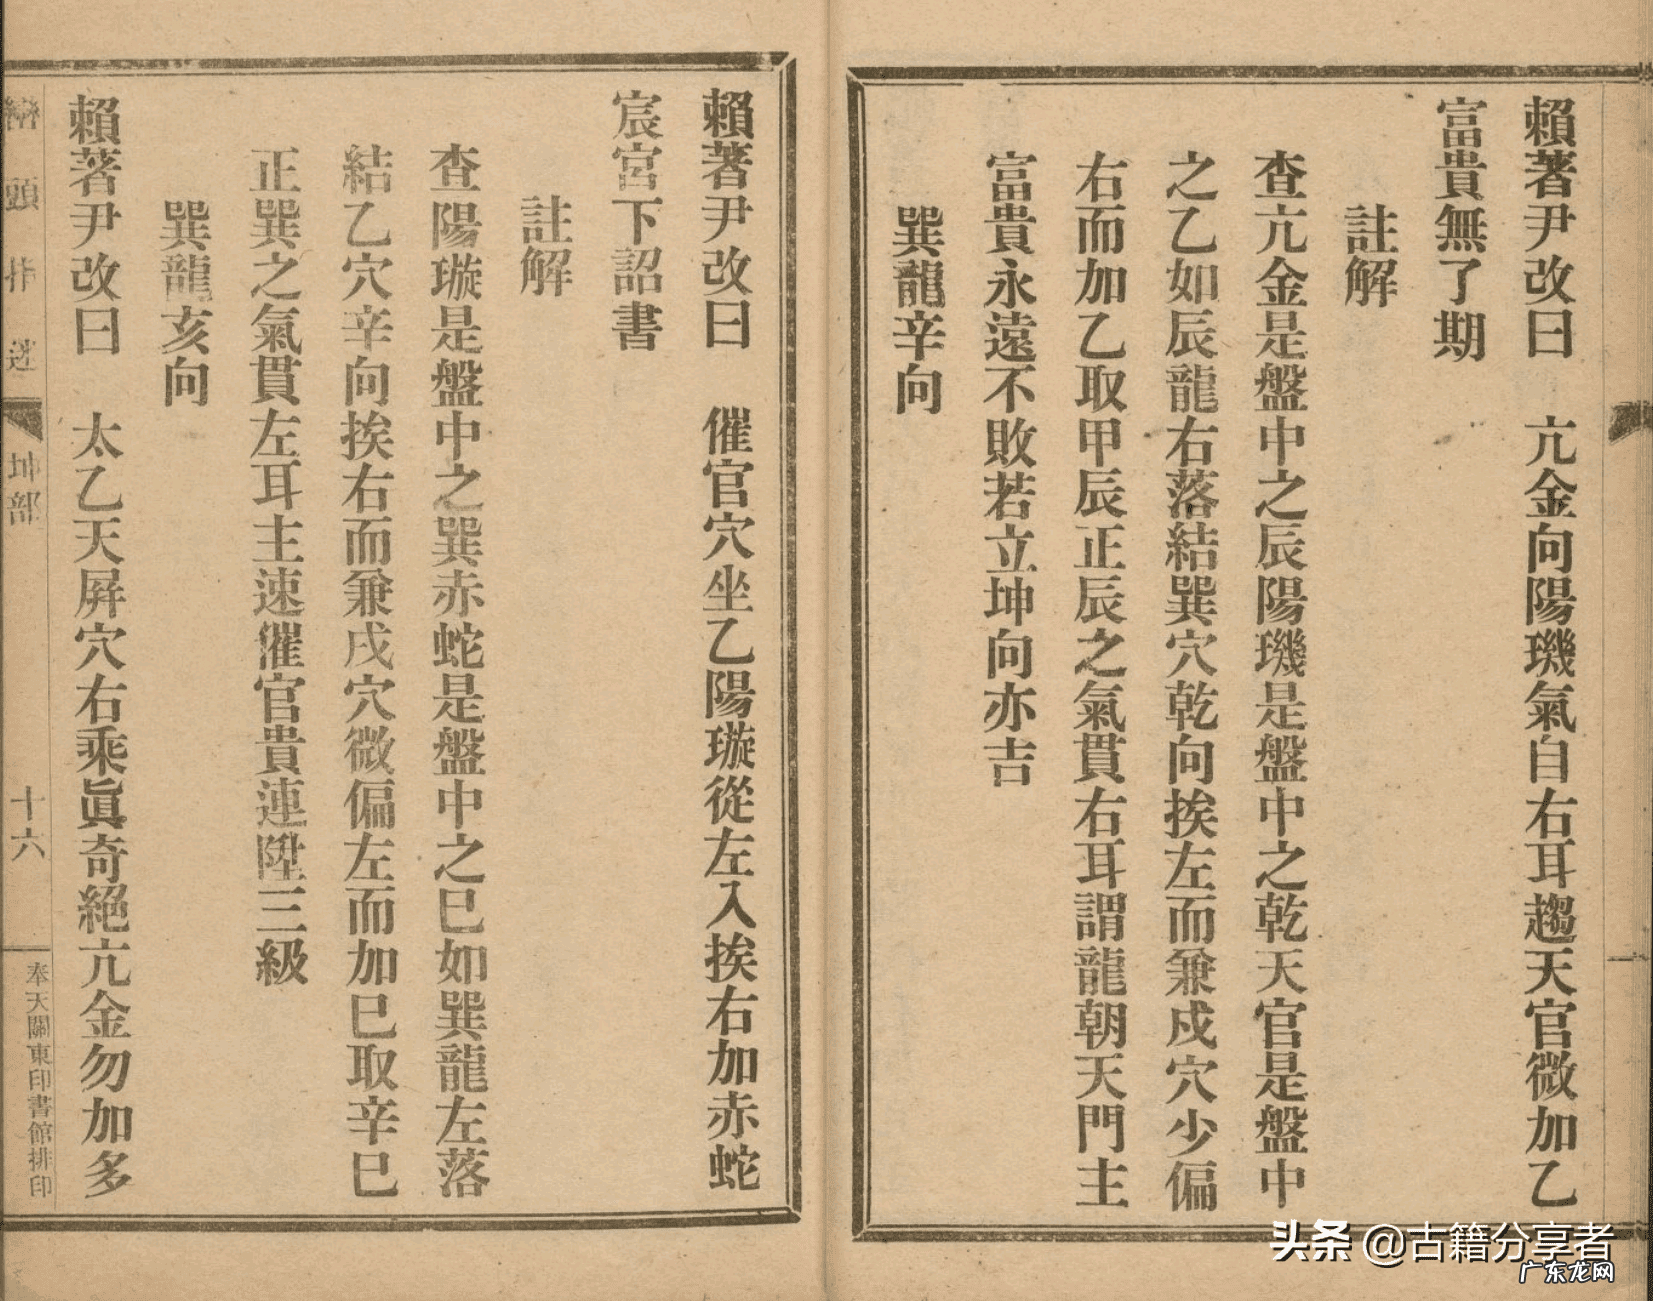 賴著尹改曰　亢金向陽璣氣自右耳趨天官微加乙
富貴無了期
註解
查亢金是盤中之辰陽璣是盤中之乾天官是盤中
之乙如辰龍右落結巽穴乾向挨左而兼戌穴少偏
右而加乙取甲辰正辰之氣貫右耳謂龍朝天門主
富貴永遠不敗若立坤向亦吉
巽龍辛向
賴著尹改曰　催官穴坐乙陽璇從左入挨右加赤蛇
宸宮下詔書
註解
查陽璇是盤中之巽赤蛇是盤中之巳如巽龍左落
結乙穴辛向挨右而兼戌穴微偏左而加巳取辛巳
正巽之氣貫左耳主速催官貴連陞三級
巽龍亥向
賴著尹改曰　太乙天屏穴右乘眞奇絕亢金勿加多
十六
奉天關東印書館排印
头条 @古籍分享者
广东龙网